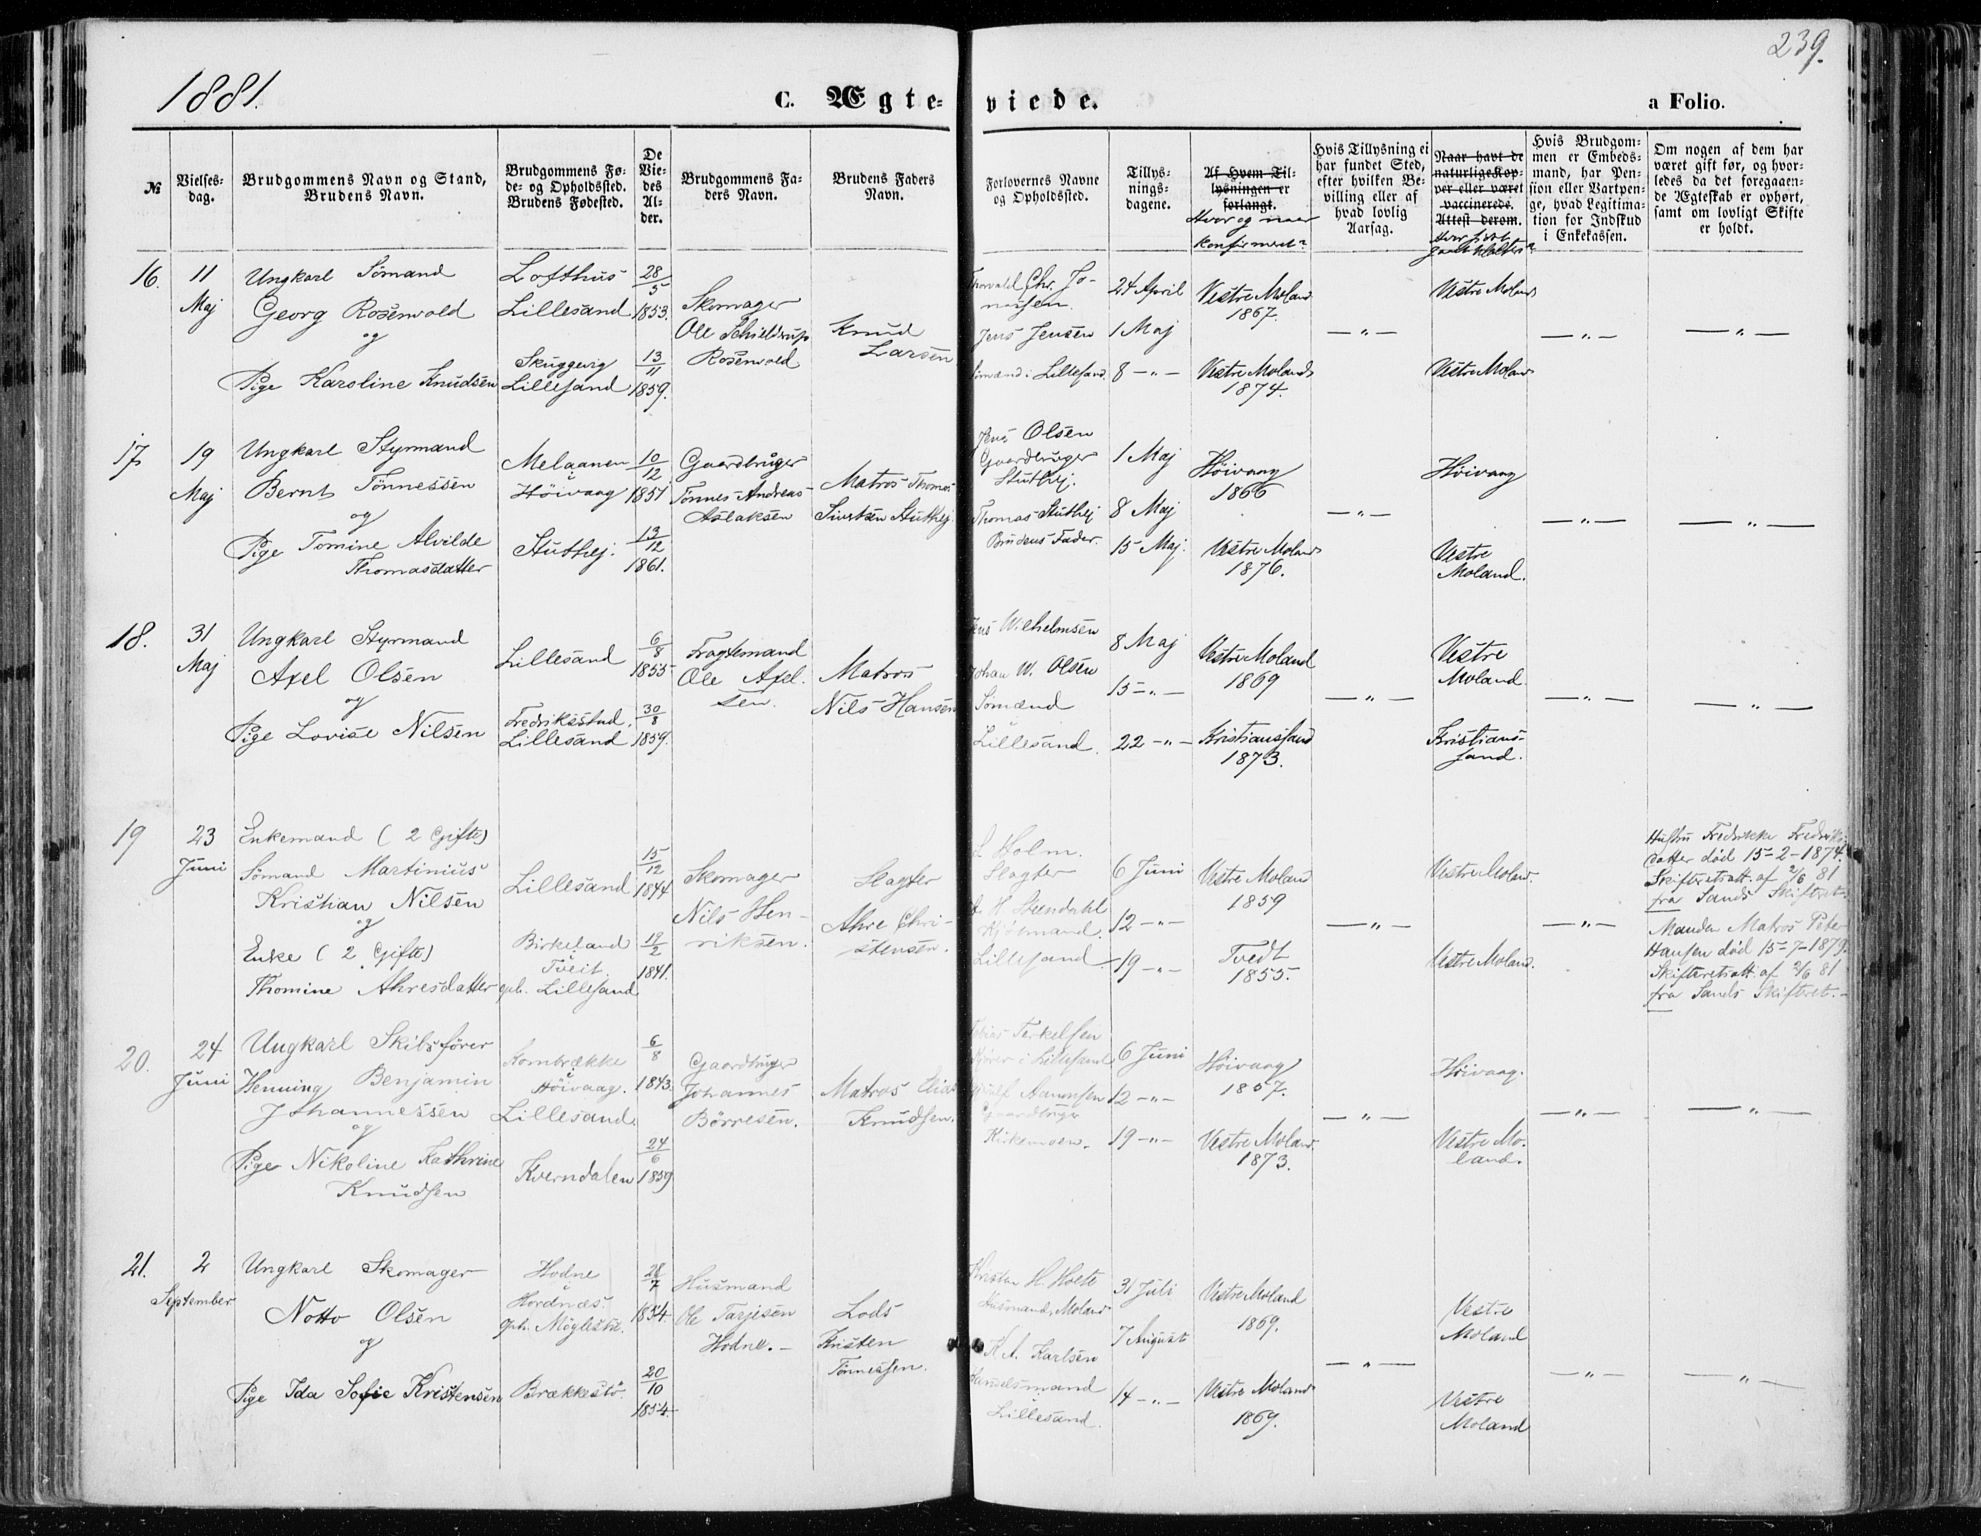 1881.
239.
C. Ægte-
viede.
a Folio.
№
Vielses-
dag.
Brudgommens Navn og Stand,
Brudens Navn.
Brudgommens Fø-
de- og Opholdssted.
Brudens Fødested.
De
Vie-
des
Al-
der.
Brudgommens Fa-
ders Navn.
Brudens Faders
Navn.
Forlovernes Navne
og Opholdssted.
Tillys-
nings-
dagene.
Af Hvem Til-
lysningen er
forlangt.
Hvor og naar
konfirmert?
Hvis Tillysning ei
har fundet Sted,
efter hvilken Be-
villing eller af
hvad lovlig
Aarsag.
Naar havt de
naturlige Kop-
per eller været
vaccinerede.
Attest derom.
Hvis Brudgom-
men er Embeds-
mand, har Pen-
sion eller Vartpen-
ge, hvad Legitima-
tion for Indskud
i Enkekassen.
Om nogen af dem har
været gift før, og hvor-
ledes da det foregaaen-
de Ægteskab er ophørt,
samt om lovligt Skifte
er holdt.
16.
11
Maj
Ungkarl Sömand
Georg Rosenvold
og
Pige Karoline Knudsen
Lofthus
Lillesand
Skuggevig
Lillesand
28
5
1853.
13
11
1859.
Skomager
Ole Schieldrup
Rosenvold
Knud
Larsen
Thorvald Chr. Jo-
nassen.
Jens Jensen
Sömænd i Lillesand.
24 April
1 Maj
8 - „ -
Vestre Moland
1867.
Vestre Moland
1874.
- „ -
Vestre Moland
Vestre Moland
- „ -
- „ -
17
19
Maj
Ungkarl Styrmand
Bernt Tönnessen
og
Pige Tomine Alvilde
Thomasdatter
Melaanen
Höivaag
Stuthej.
10
12
1851
13
12
1861.
Gaardbruger
Tönnes Andreas
Aslaksen
Matros Thomas
Sivertsen Stuthej
Jens Olsen
Gaardbruger
Stuthej.
Thomas Stuthej
Brudens Fader.
1 Maj
8 Maj
15 Maj.
Höivaag
1866
Vestre Moland
1876.
- „ -
Höivaag
Vestre
Moland.
- „ -
- „ -
18.
31
Maj
Ungkarl Styrmand
Axel Olsen
og
Pige Lovise Nilsen
Lillesand
Fredriksstad,
Lillesand
6
8
1855
30
8
1859.
Fragtemand
Ole Axel-
sen.
Matros
Nils Hansen
Jens Wilhelmsen
Johan W. Olsen
Sömænd
Lillesand.
8 Maj
15 - „ -
22 - „ -
Vestre Moland
1869
Kristianssand
1873.
- „ -
Vestre
Moland.
Kristians-
sand.
- „ -
- „ -
19
23
Juni
Enkemand (2 Gifte)
Sömand Martinius
Kristian Nilsen
og
Enke (2 Gifte)
Thomine Ahresdatter
Lillesand
Birkeland
Tveit
oph. Lillesand
15
12
1844
19
2
1841.
Skomager
Nils Hen-
riksen.
Slagter
Ahre Chri-
stensen.
L Holm.
Slagter
H Steendahl
Lillesand.
6 Juni
12 - „ -
19 - „ -
Vestre Moland
1859
Tvedt
1855.
- „ -
Vestre Moland.
Vestre Moland.
- „ -
Hustru Fredrikke Fredriks
datter död 15-2-1874.
Skifteretsatt. af 2/6 81
fra Sands Skifteret.
Manden Matros Peter
Hansen död 15-7-1879.
Skifteretsatt. af 2/6 81
fra Sands Skifteret.
20.
24
Juni
Ungkarl Skibsförer
Henning Benjamin
Johannessen
og
Pige Nikoline Kathrine
Knudsen
Kornbrække
Höivaag.
Lillesand.
Kverndalen
6
8
1843.
24
6
1859
Gaardbruger
Johannes
Börresen.
Matros Elias
Knudsen.
Tobias Terkelsen
i Lillesand
Aanonsen
Gaardbruger
Kirkemoen.
6 Juni
12 - „ -
19 - „ -
Höivaag
1857.
Vestre Moland.
1873.
- „ -
Höivaag.
Vestre Mo-
land.
- „ -
- „ -
21.
2
September
Ungkarl Skomager
Notto Olsen
og
Pige Ida Sofie Kristensen
Hodne
Hordnæs.
oph. Möglestu.
Brækkestö.
28
7
1854.
20
10
1854.
Husmand
Ole Tarjesen
Hodne.
Lods
Kristen
Tönnessen.
Kristen H.
Husmand, Moland
K A. Karlsen
Handelsmand
Lillesand.
31 Juli
7 August
14 - „ -
Vestre Moland
1869.
Vestre Moland
1869.
- „ -
Vestre
Moland
Vestre
Moland
- „ -
- „ -